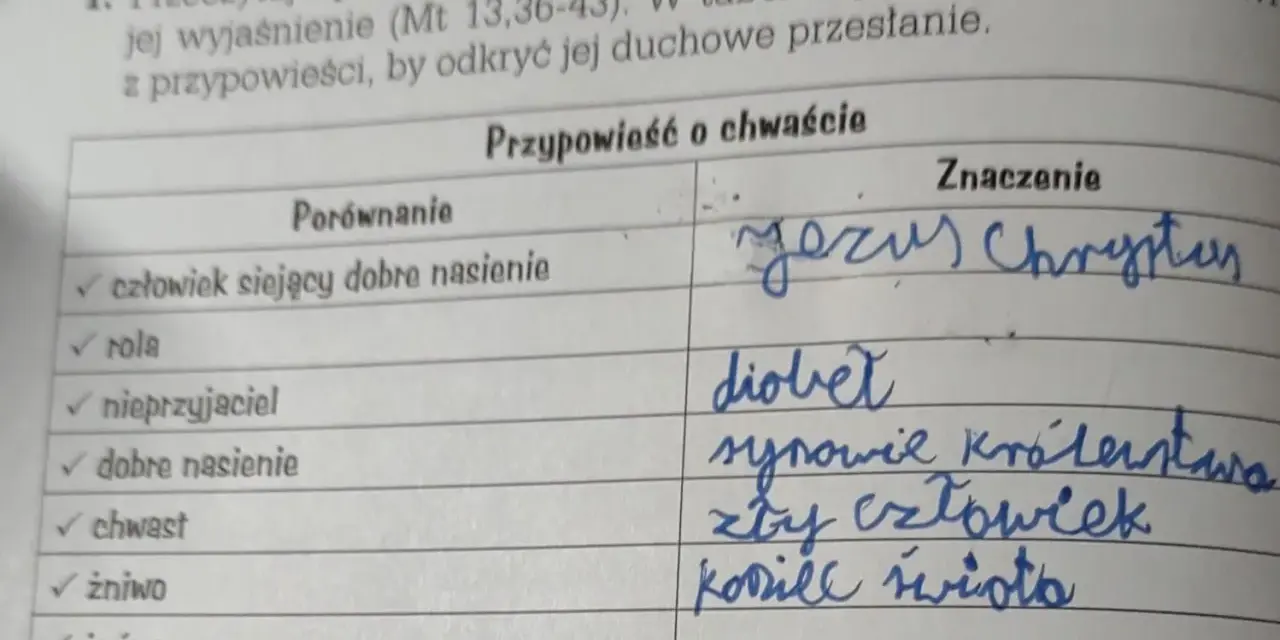 jej wyjaśnienie (Mt 13,36-43). W
z przypowieści, by odkryć jej duchowe przesłanie.
Przypowieść o chwaście
Porównanie Znaczenie
✓ człowiek siejący dobre nasienie Jezus Chrystus
✓ rola
✓ nieprzyjaciel diobeł
✓ dobre nasienie synowie królestwa
✓ chwast zły człowiek
✓ żniwo koniec świata